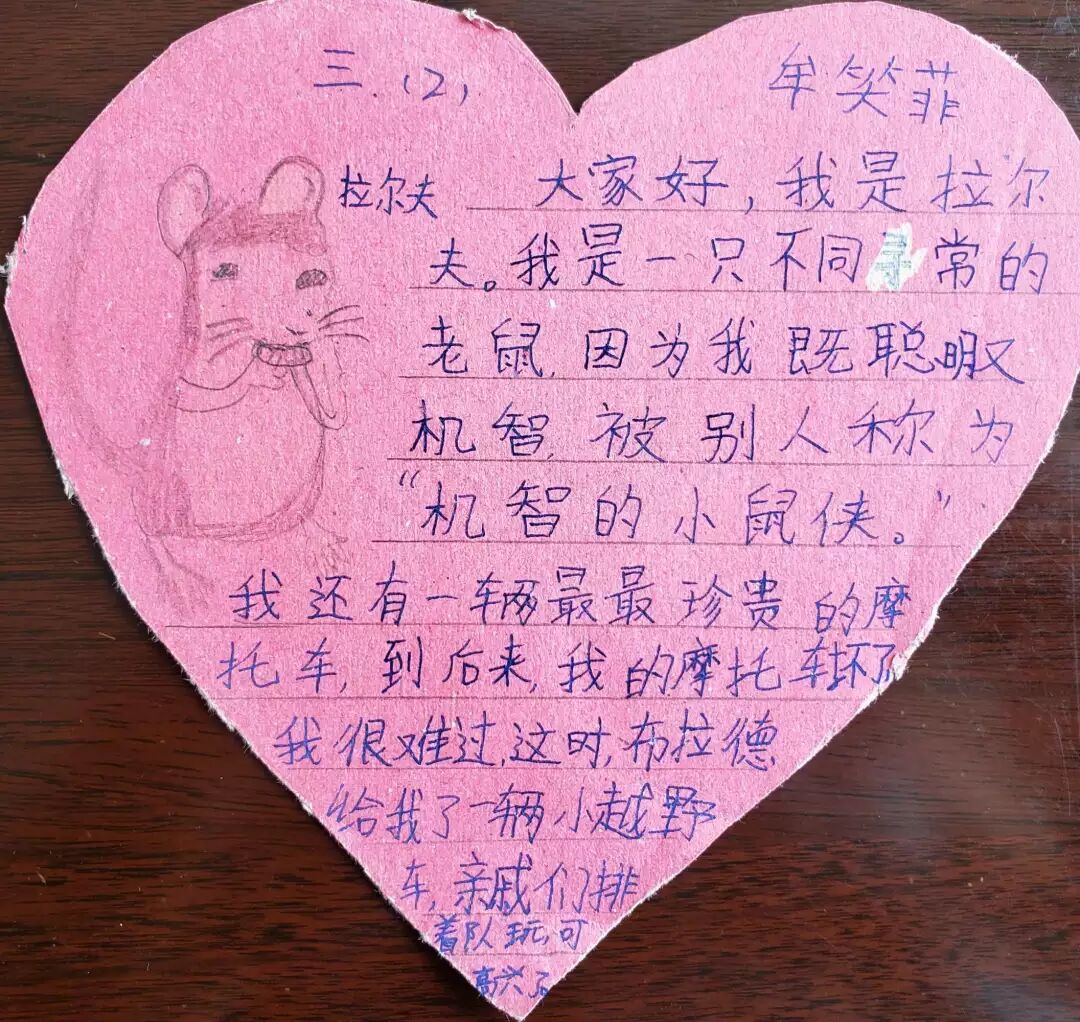 三.(2)
牟笑菲
拉尔夫
大家好,我是拉尔
夫。我是一只不同寻常的
老鼠,因为我既聪明又
机智,被别人称为
“机智的小鼠侠。”
我还有一辆最最珍贵的摩
托车,到后来,我的摩托车坏了
我很难过,这时,布拉德
给我了一辆小越野
车,亲戚们排
着队玩,可
高兴了。